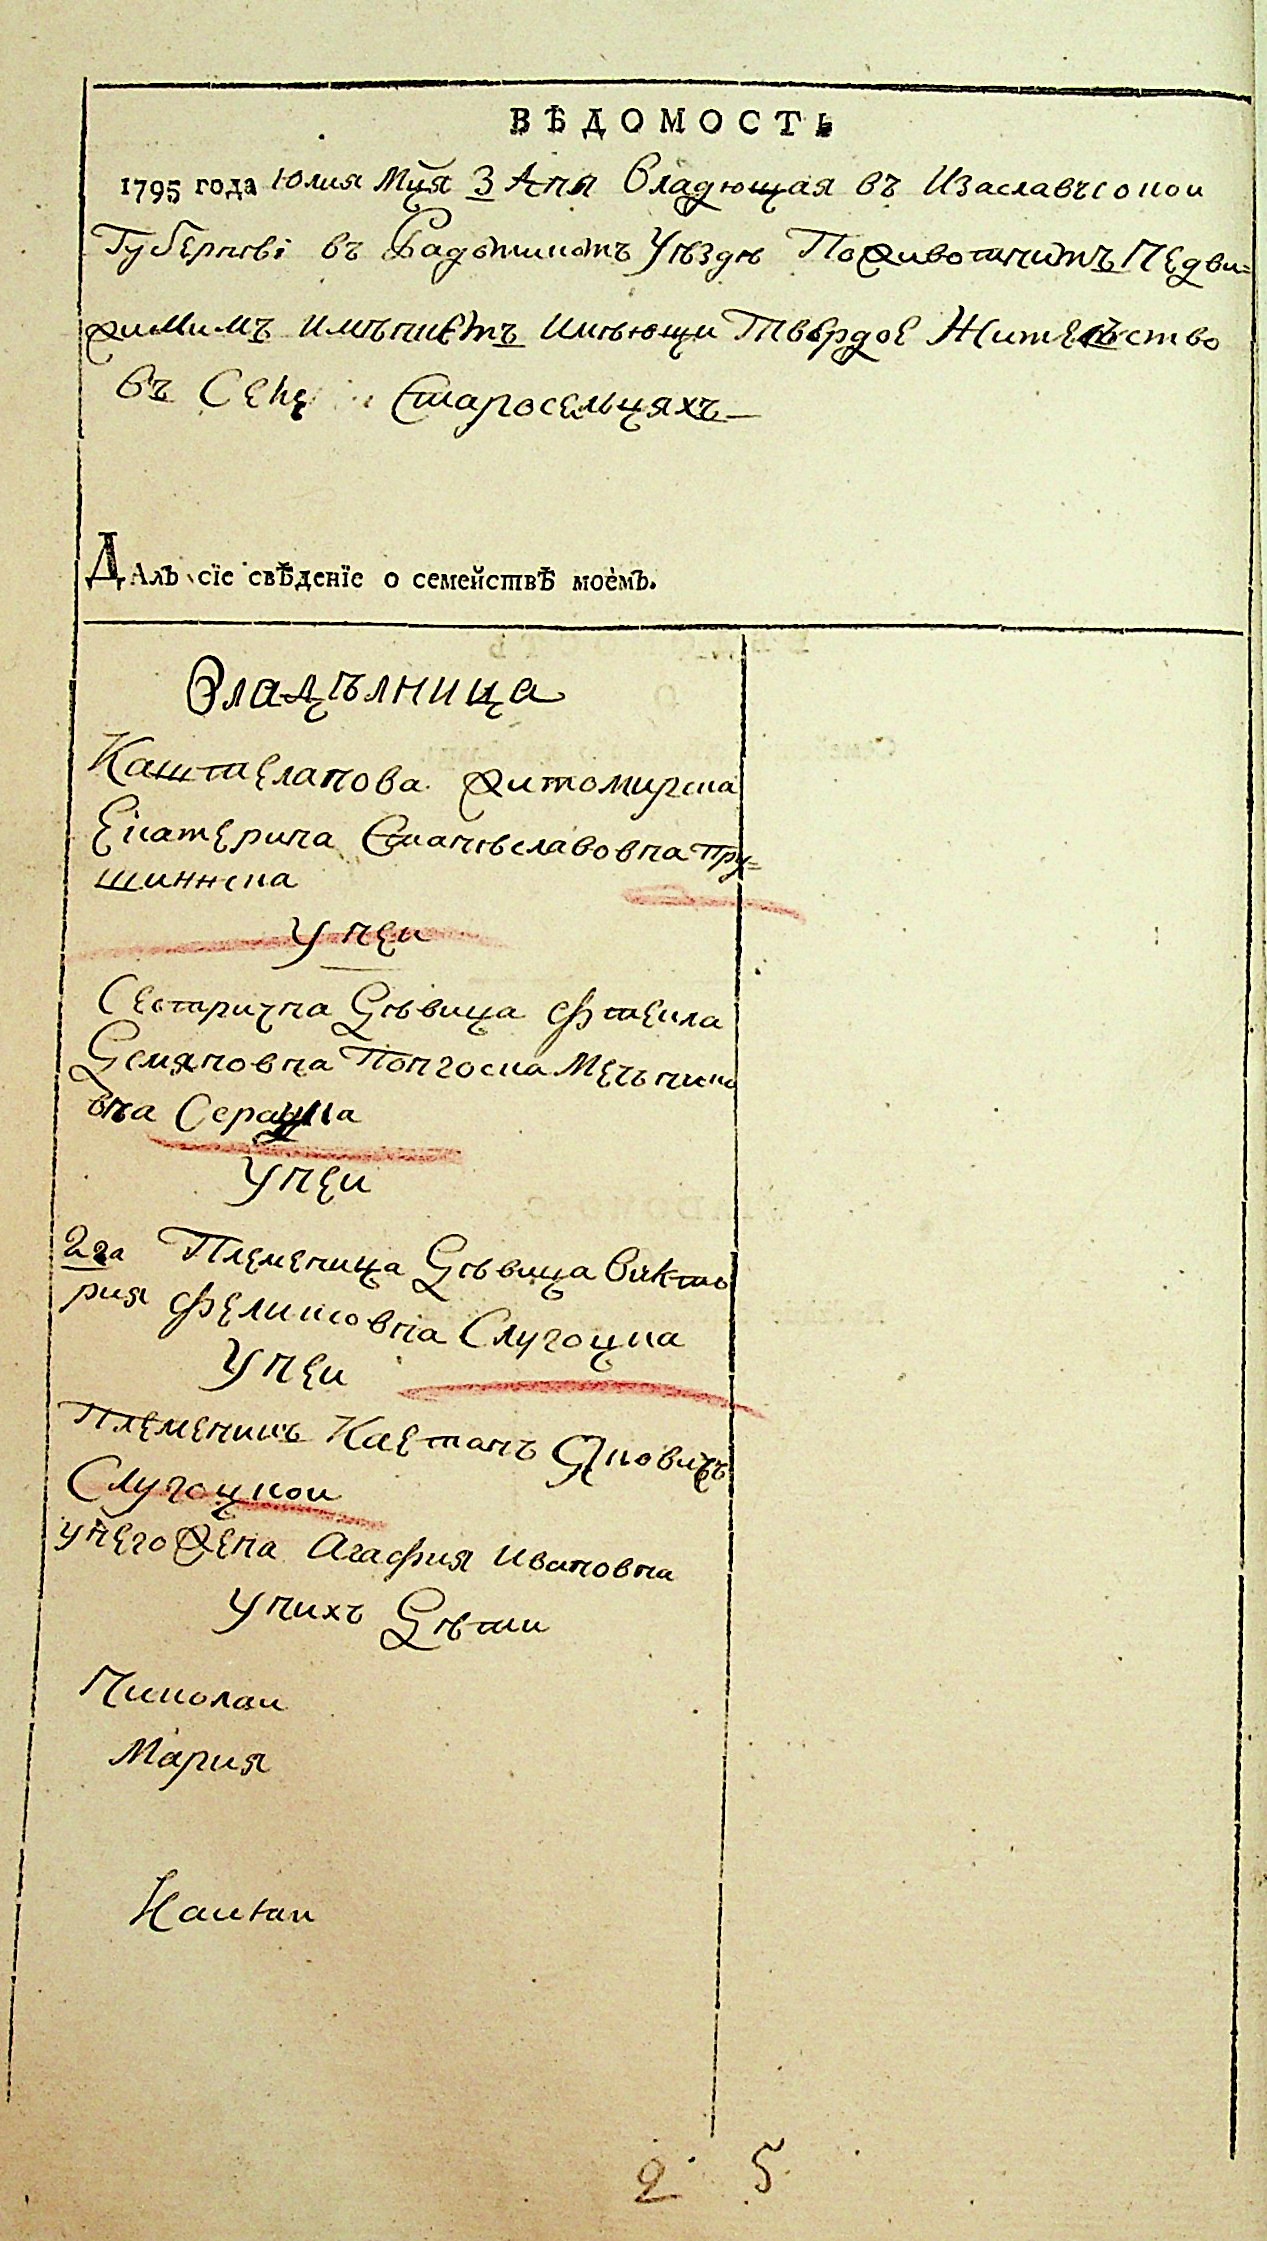 ВѢДОМОСТЬ
1795 года Юлия Мця 3 Дня Владующая въ Изаславъской
Губернѣі въ Уѣздѣ Поживотнимъ Недви=
жимимъ имѣниемъ имѣющи Твердое Жителство
въ Селе Старосельцяхъ
Далъ сїе свѣденїе о семействѣ моемъ.
Владѣлница
Каштелянова житомирска
Екатерина Станѣславовна Пру=
шинска
У неи
Сестрична Дѣвица Фтеила
Демяновна Понгоска Мечнико
вна
У неи
2га Племеница Дѣвица Викто
рия Феликсовна Слугоцка
У неи
Племеникъ Каетанъ Яковичъ
Слугоцкои
у него Жена Агафия Ивановна
У нихъ Дѣти
Николаи
Мария
2 5